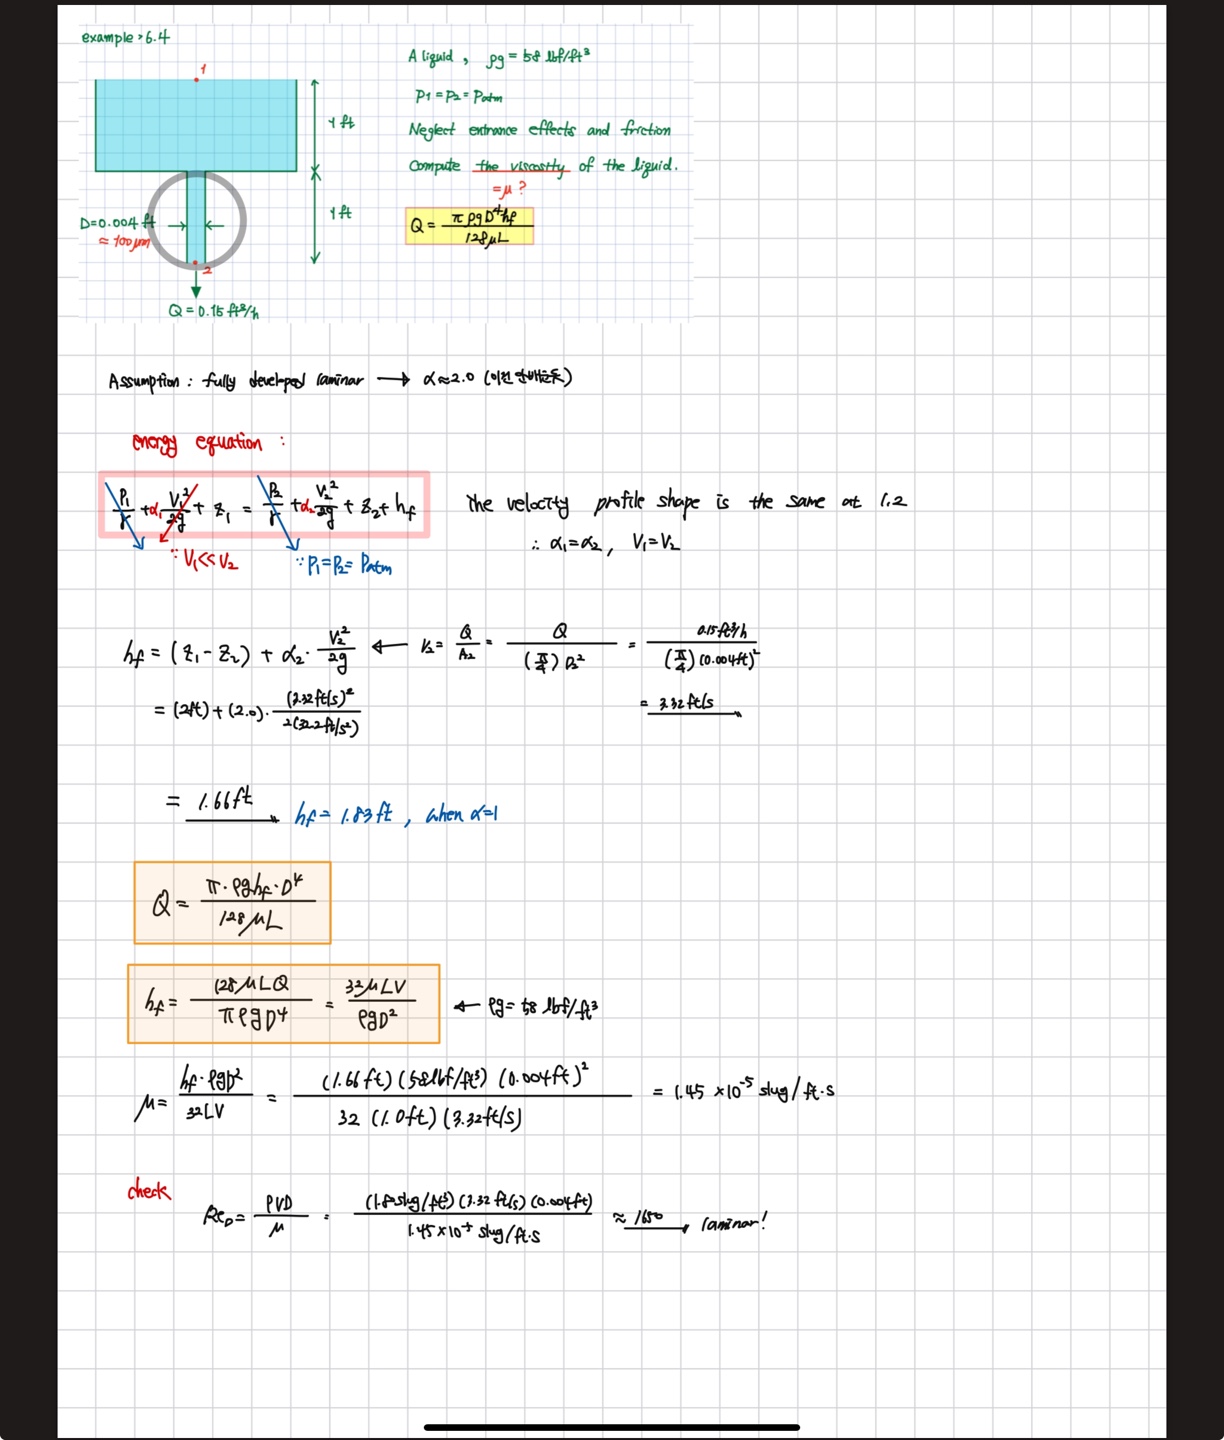 example > 6.4
1
1 ft
D=0.004 ft
≈ 100 μm
1 ft
2
Q = 0.15 ft³/h
A liquid, ρg = 58 lbf/ft³
P1 = P2 = Patm
Neglect entrance effects and friction
Compute the viscosity of the liquid.
= μ ?
Q = πρgD⁴hf / 128μL
Assumption : fully developed laminar → α≈2.0
energy equation :
P1/γ + α1 V1²/2g + z1 = P2/γ + α2 V2²/2g + z2 + hf
∵ V1<<V2
∵ P1=P2= Patm
The velocity profile shape is the same at 1.2
∴ α1=α2, V1=V2
hf = (z1 - z2) + α2 · V2²/2g ← V2 = Q/A2 = Q / (π/4) D2² = 0.15ft³/h / (π/4)(0.004ft)²
= (2ft) + (2.0) · (3.32ft/s)² / 2(32.2ft/s²)
= 3.32 ft/s
= 1.66ft
hf = 1.83 ft , when α=1
Q = π·ρghf·D⁴ / 128μL
hf = 128μLQ / πρgD⁴ = 32μLV / ρgD² ← ρg= 58 lbf/ft³
μ = hf·ρgD² / 32LV = (1.66ft)(58lbf/ft³)(0.004ft)² / 32 (1.0ft)(3.32ft/s) = 1.45 ×10⁻⁵ slug/ft·s
check
ReD = ρVD / μ = (1.8slug/ft³)(3.32 ft/s)(0.004ft) / 1.45×10⁻⁵ slug/ft·s ≈ 1650, laminar!